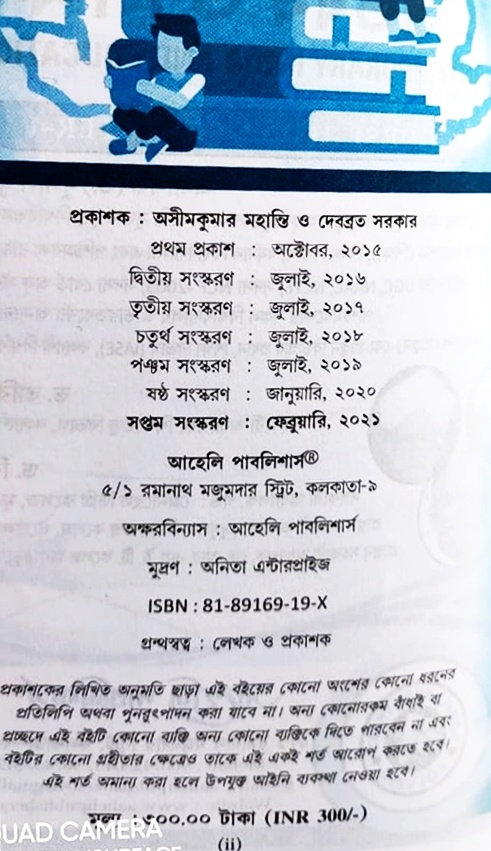 প্রকাশক : অসীমকুমার মহান্তি ও দেবব্রত সরকার
প্রথম প্রকাশ : অক্টোবর, ২০১৫
দ্বিতীয় সংস্করণ : জুলাই, ২০১৬
তৃতীয় সংস্করণ : জুলাই, ২০১৭
চতুর্থ সংস্করণ : জুলাই, ২০১৮
পঞ্চম সংস্করণ : জুলাই, ২০১৯
ষষ্ঠ সংস্করণ : জানুয়ারি, ২০২০
সপ্তম সংস্করণ : ফেব্রুয়ারি, ২০২১
আহেলি পাবলিশার্স®
৫/১ রমানাথ মজুমদার স্ট্রিট, কলকাতা-৯
অক্ষরবিন্যাস : আহেলি পাবলিশার্স
মুদ্রণ : অনিতা এন্টারপ্রাইজ
ISBN : 81-89169-19-X
গ্রন্থস্বত্ব : লেখক ও প্রকাশক
প্রকাশকের লিখিত অনুমতি ছাড়া এই বইয়ের কোনো অংশের কোনো ধরনের
প্রতিলিপি অথবা পুনরুৎপাদন করা যাবে না। অন্য কোনোরকম বাঁধাই বা
প্রচ্ছদে এই বইটি কোনো ব্যক্তি অন্য কোনো ব্যক্তিকে দিতে পারবেন না এবং
বইটির কোনো গ্রহীতার ক্ষেত্রেও তাকে এই একই শর্ত আরোপ করতে হবে।
এই শর্ত অমান্য করা হলে উপযুক্ত আইনি ব্যবস্থা নেওয়া হবে।
মূল্য : ৩০০.০০ টাকা (INR 300/-)
QUAD CAMERA
(ii)